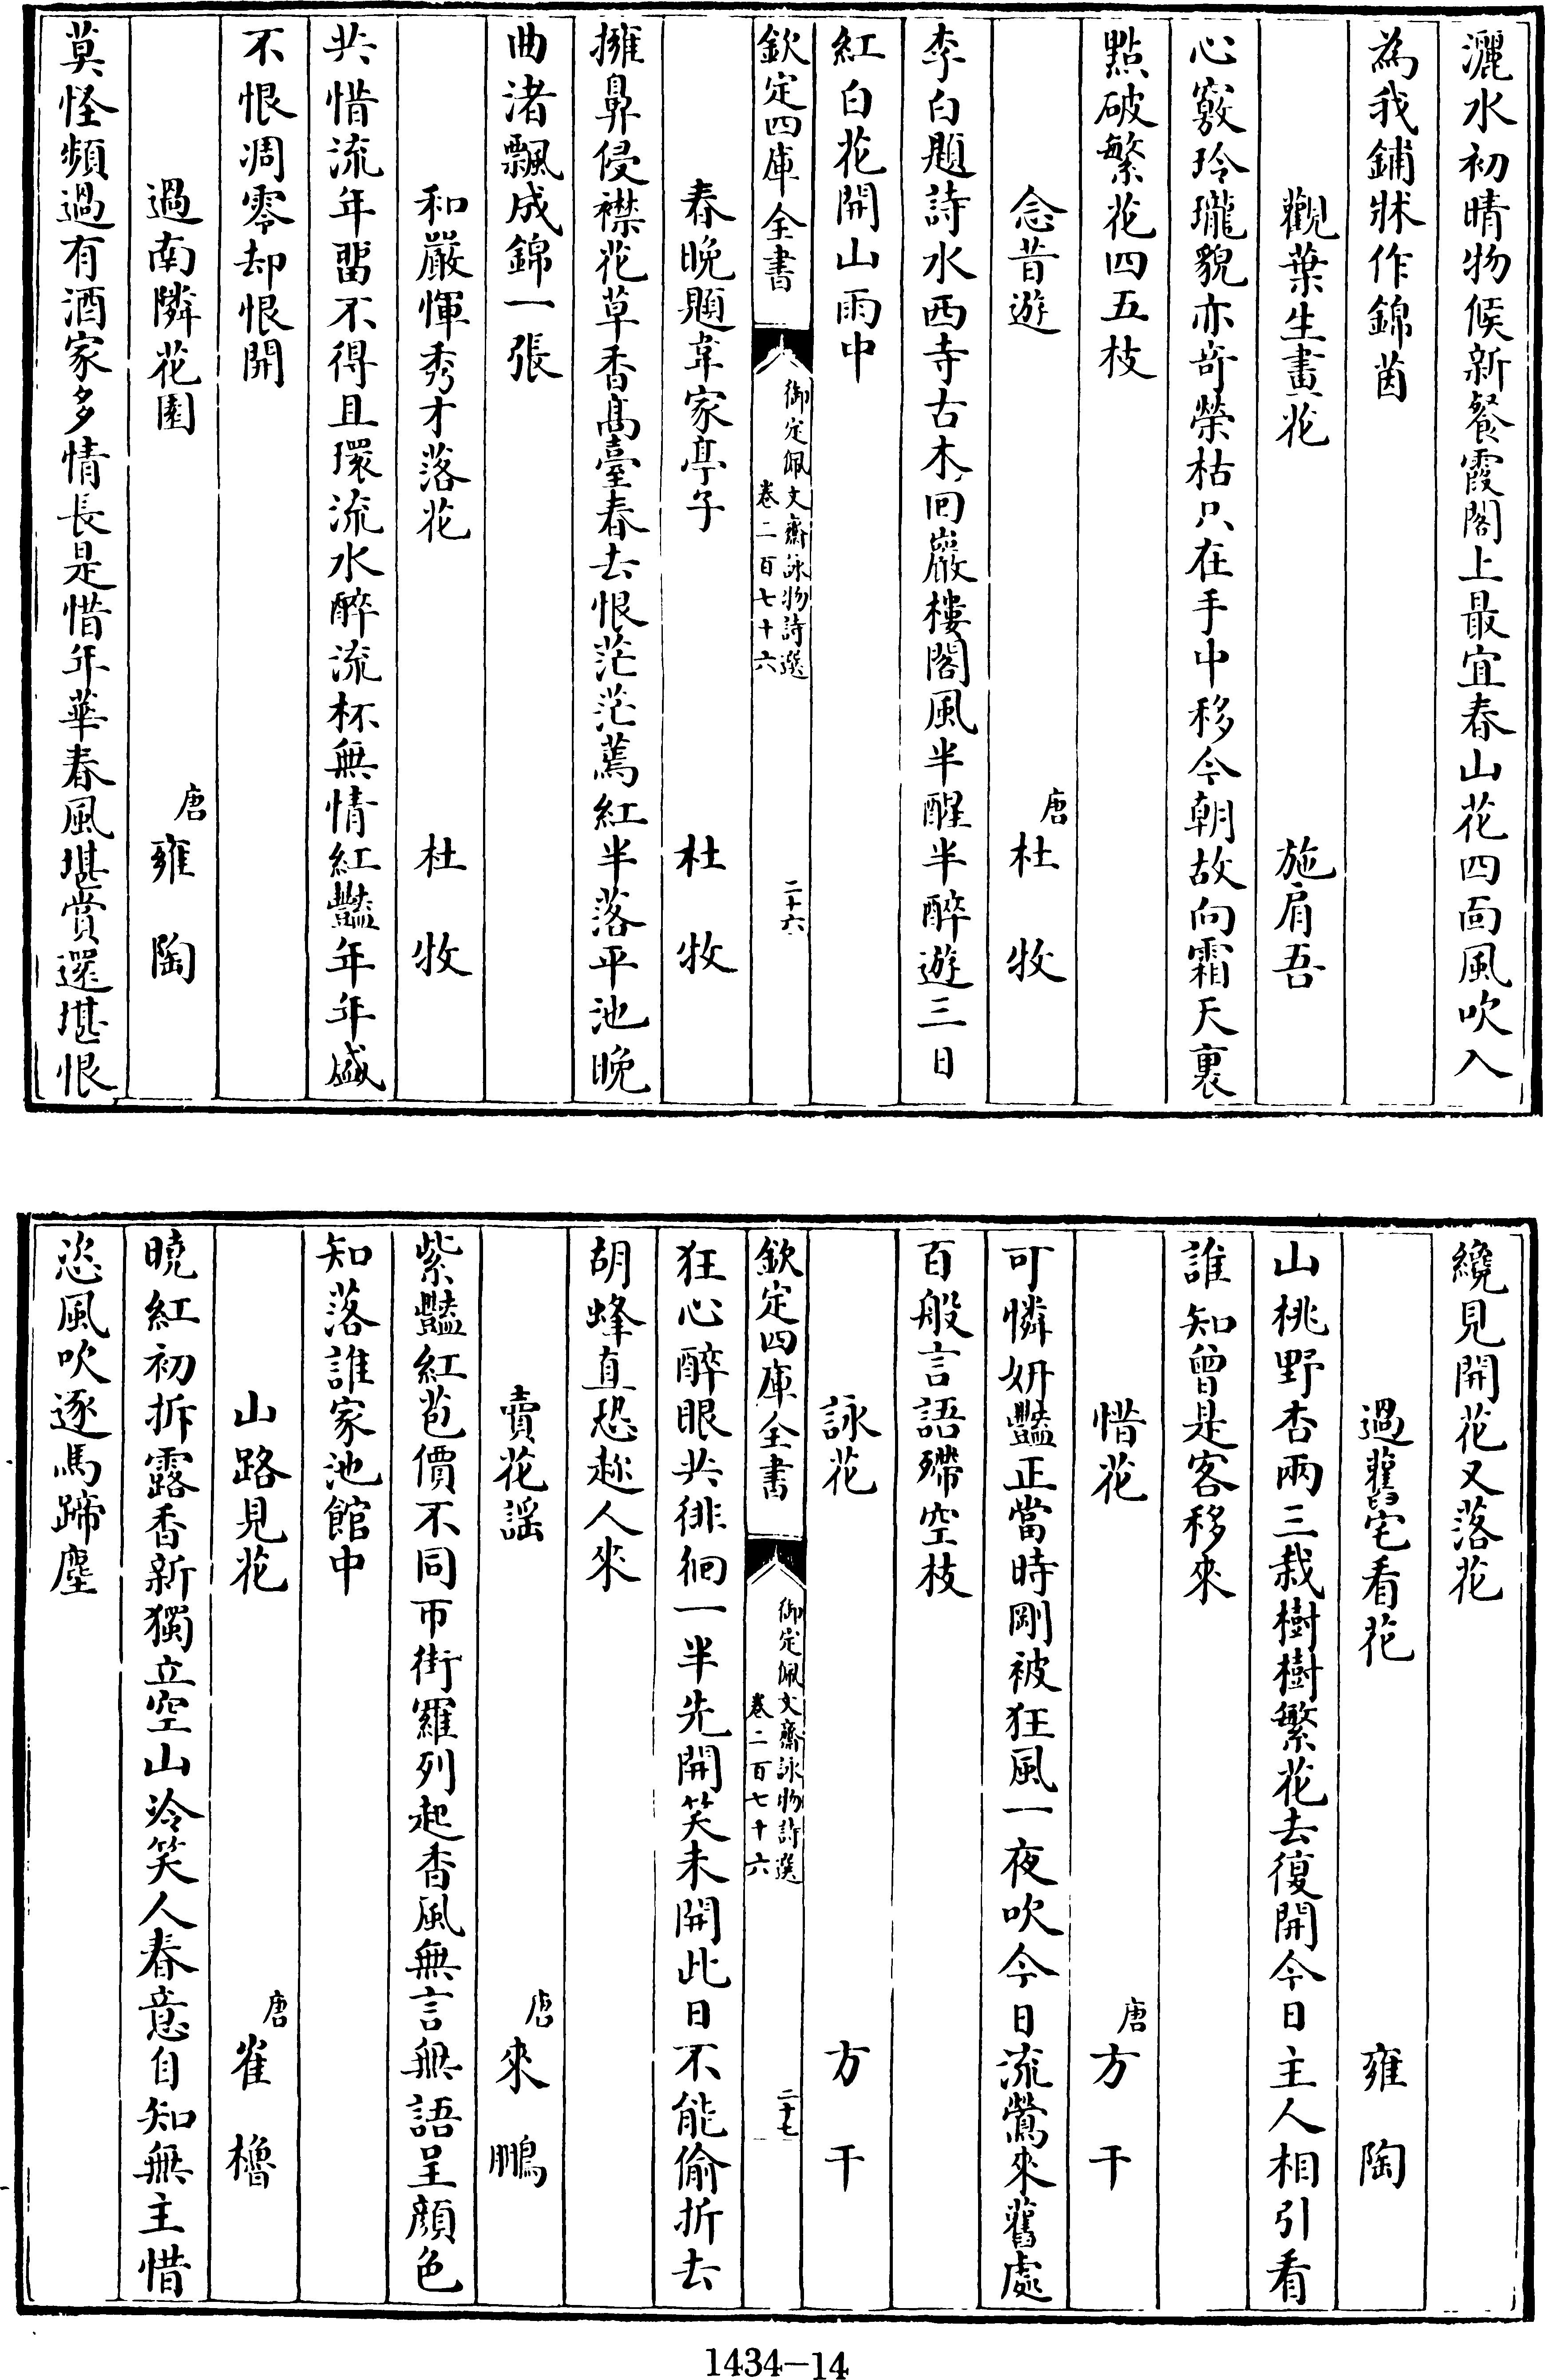 灑水初晴物候新餐霞閣上最宜春山花四面風吹入
為我鋪牀作錦茵
觀葉生畫花　施肩吾
心竅玲瓏貌亦奇榮枯只在手中移今朝故向霜天裏
點破繁花四五枝
念昔遊　唐杜牧
李白題詩水西寺古木回巖樓閣風半醒半醉遊三日
紅白花開山雨中
欽定四庫全書　御定佩文齋詠物詩選　卷二百七十六　二十六
春晚題韋家亭子　杜牧
擁鼻侵襟花草香高臺春去恨茫茫蔫紅半落平池晚
曲渚飄成錦一張
和嚴惲秀才落花　杜牧
共惜流年留不得且環流水醉流杯無情紅豔年年盛
不恨凋零却恨開
過南隣花園　唐雍陶
莫怪頻過有酒家多情長是惜年華春風堪賞還堪恨
纔見開花又落花
過舊宅看花　雍陶
山桃野杏兩三栽樹樹繁花去復開今日主人相引看
誰知曾是客移來
惜花　唐方干
可憐妍豔正當時剛被狂風一夜吹今日流鶯來舊處
百般言語殢空枝
詠花　方干
欽定四庫全書　御定佩文齋詠物詩選　卷二百七十六　二十七
狂心醉眼共徘徊一半先開笑未開此日不能偷折去
胡蜂直恐趂人來
賣花謡　唐來鵬
紫豔紅苞價不同帀街羅列起香風無言無語呈顔色
知落誰家池館中
山路見花　唐崔櫓
曉紅初拆露香新獨立空山冷笑人春意自知無主惜
恣風吹逐馬蹄塵
1434—14